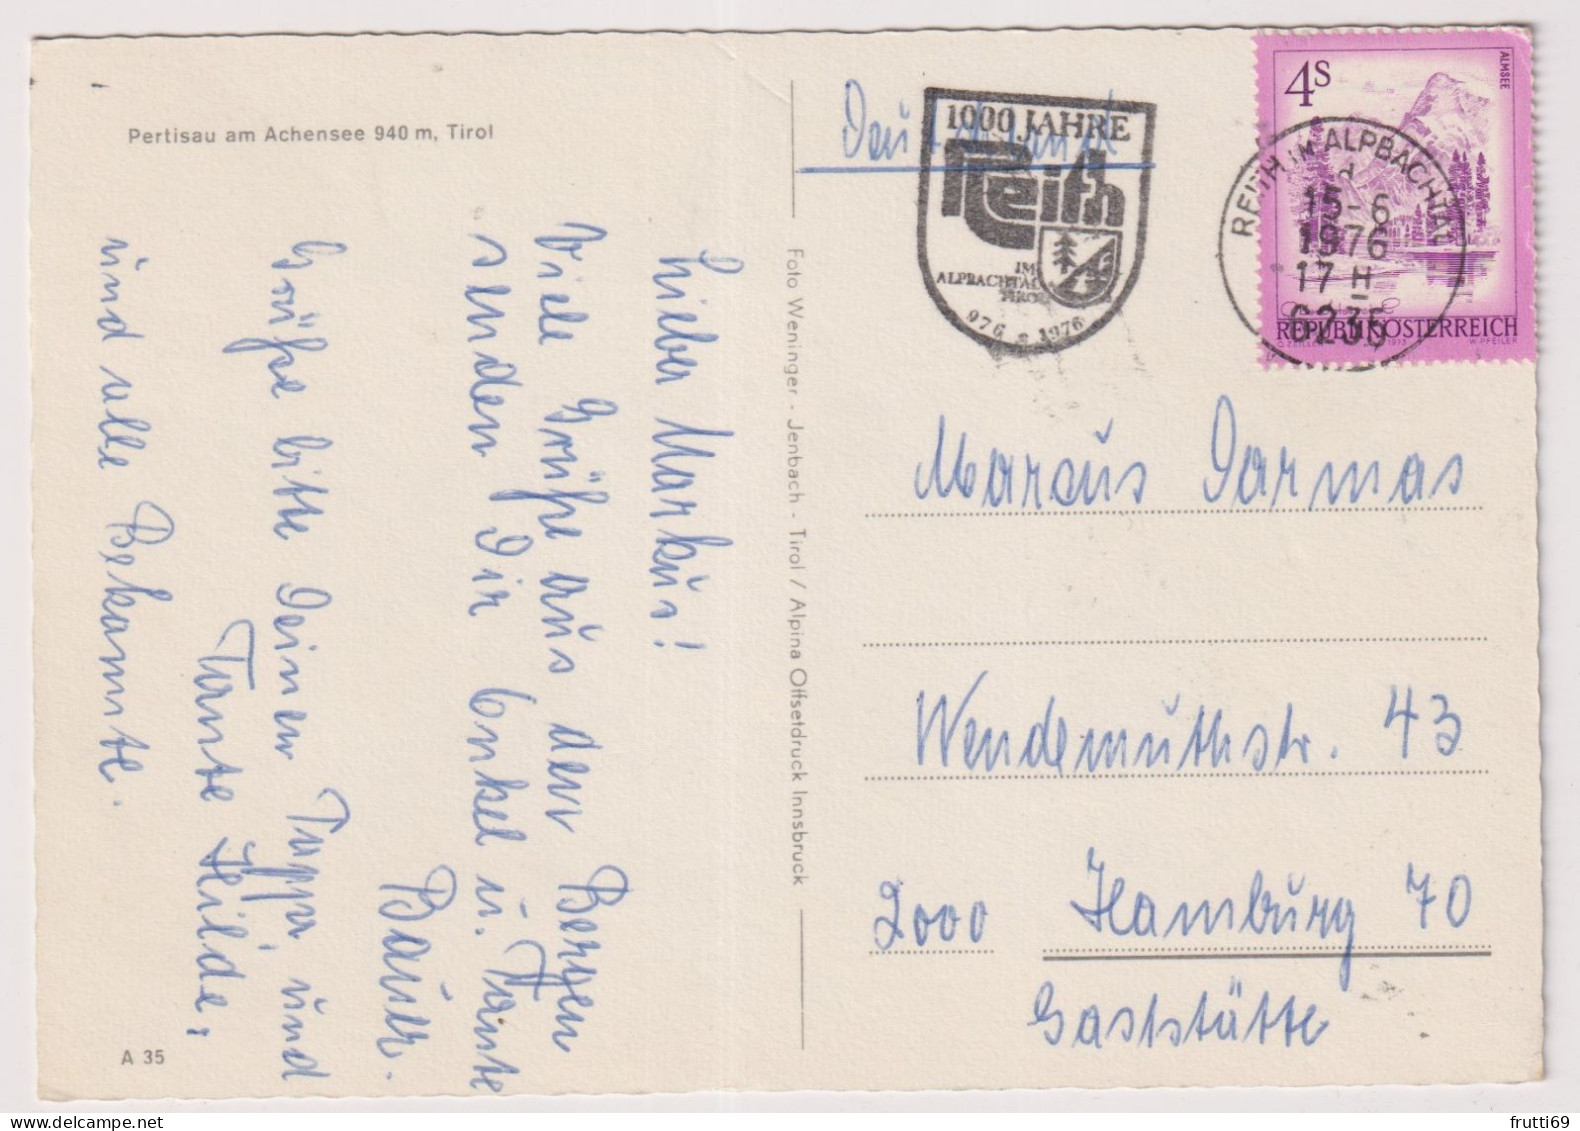 Pertisau am Achensee 940 m, Tirol
Lieber Markus!
Viele Grüße aus den Bergen
senden Dir Onkel u. Tante
Bauer.
Grüße bitte Deinen Pappi und
Tante Hilde,
und alle Bekannte.
A 35
Foto Weninger - Jenbach - Tirol / Alpina Offsetdruck Innsbruck
1000 JAHRE
Reith
IM
ALPBACHTAL
TIROL
976 1976
4S
ALMSEE
REPUBLIK ÖSTERREICH
W. PFEILER
REITH IM ALPBACHTAL
15-6
1976
17 H
6235
Marcus Darmas
Wendemuthstr. 43
2000 Hamburg 70
Gaststätte
frutti69